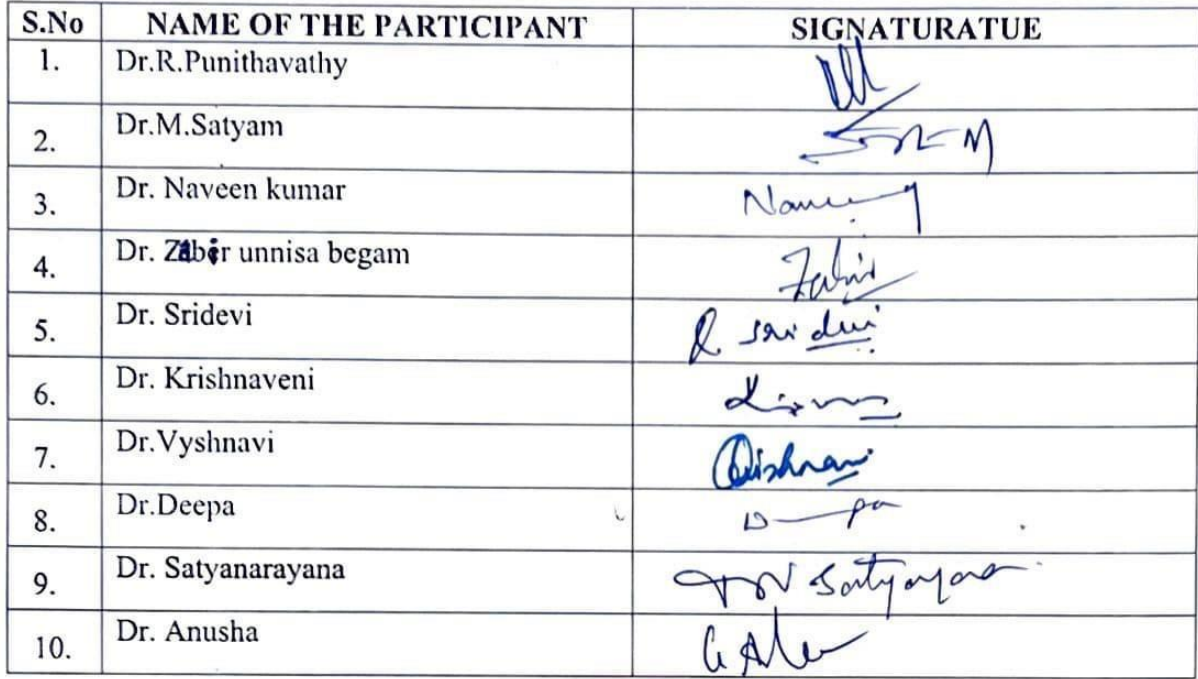 S.No NAME OF THE PARTICIPANT SIGNATURATUE
1. Dr.R.Punithavathy
2. Dr.M.Satyam
3. Dr. Naveen kumar
4. Dr. Zabir unnisa begam Zabir
5. Dr. Sridevi R Sri devi
6. Dr. Krishnaveni
7. Dr.Vyshnavi
8. Dr.Deepa
9. Dr. Satyanarayana
10. Dr. Anusha